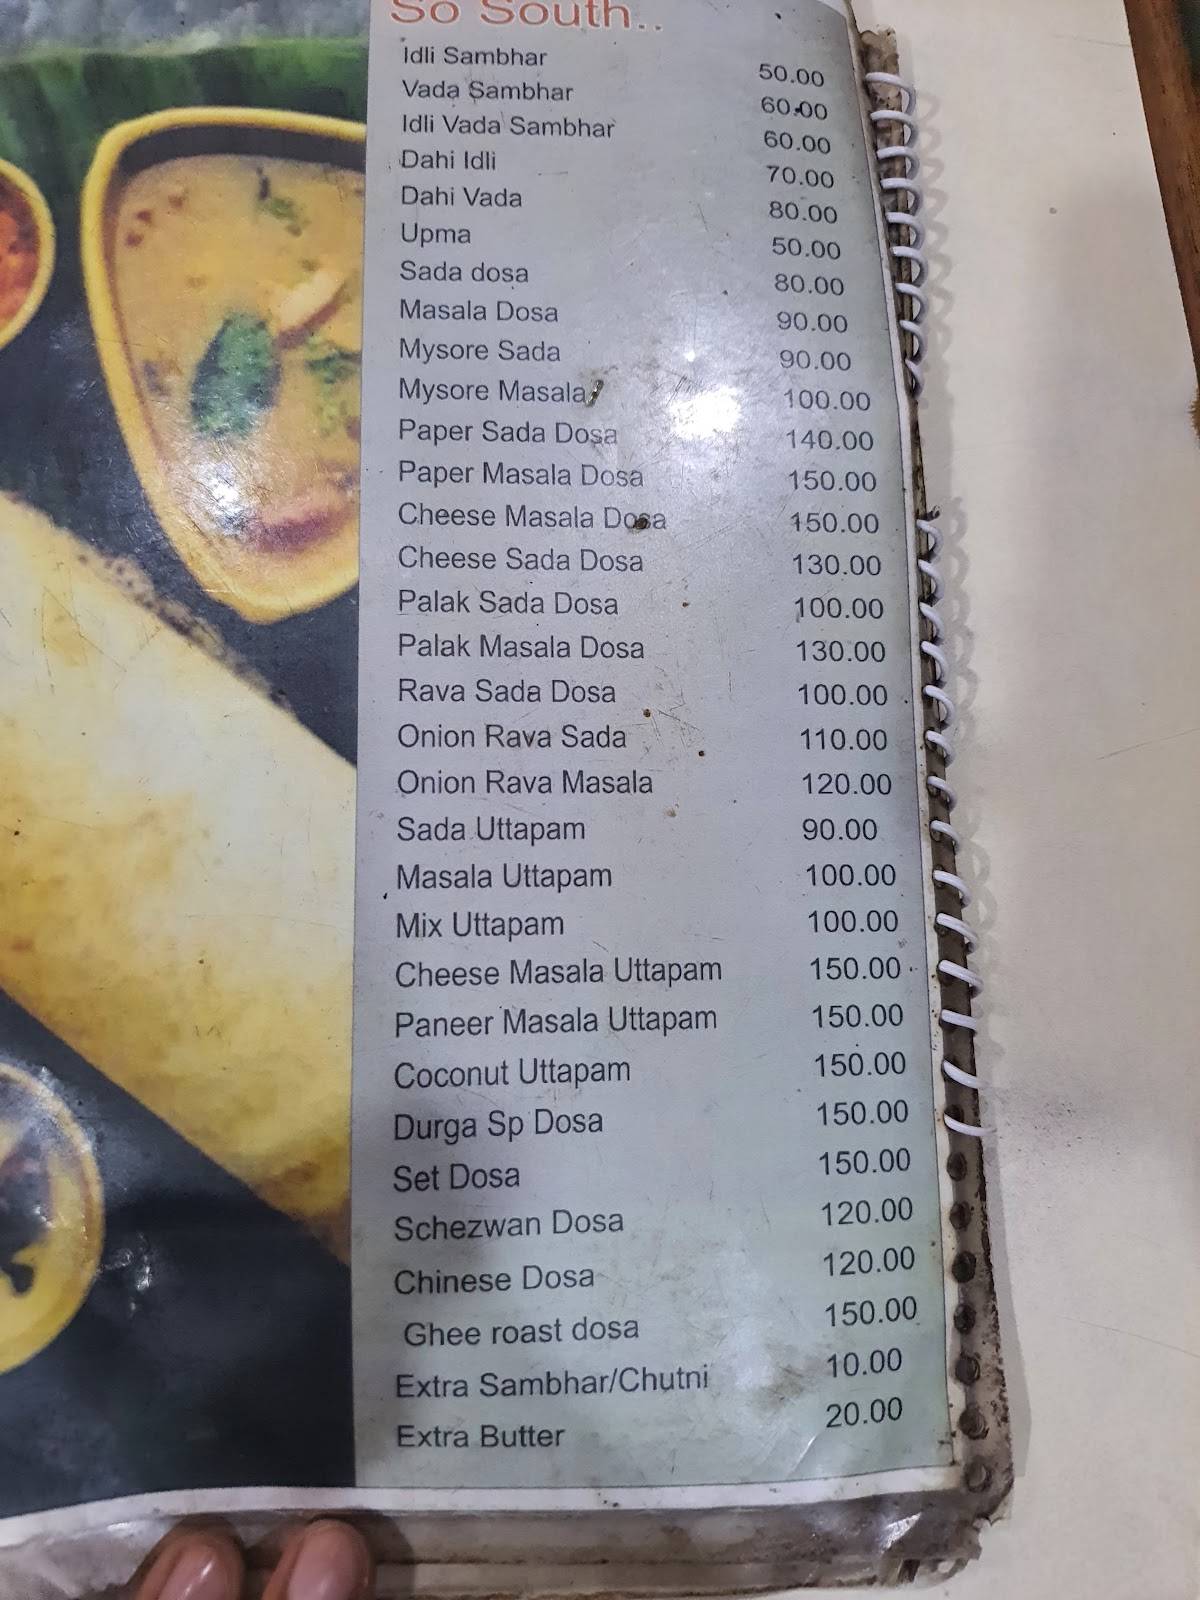 So South..
Idli Sambhar 50.00
Vada Sambhar 60.00
Idli Vada Sambhar 60.00
Dahi Idli 70.00
Dahi Vada 80.00
Upma 50.00
Sada dosa 80.00
Masala Dosa 90.00
Mysore Sada 90.00
Mysore Masala 100.00
Paper Sada Dosa 140.00
Paper Masala Dosa 150.00
Cheese Masala Dosa 150.00
Cheese Sada Dosa 130.00
Palak Sada Dosa 100.00
Palak Masala Dosa 130.00
Rava Sada Dosa 100.00
Onion Rava Sada 110.00
Onion Rava Masala 120.00
Sada Uttapam 90.00
Masala Uttapam 100.00
Mix Uttapam 100.00
Cheese Masala Uttapam 150.00
Paneer Masala Uttapam 150.00
Coconut Uttapam 150.00
Durga Sp Dosa 150.00
Set Dosa 150.00
Schezwan Dosa 120.00
Chinese Dosa 120.00
Ghee roast dosa 150.00
Extra Sambhar/Chutni 10.00
Extra Butter 20.00